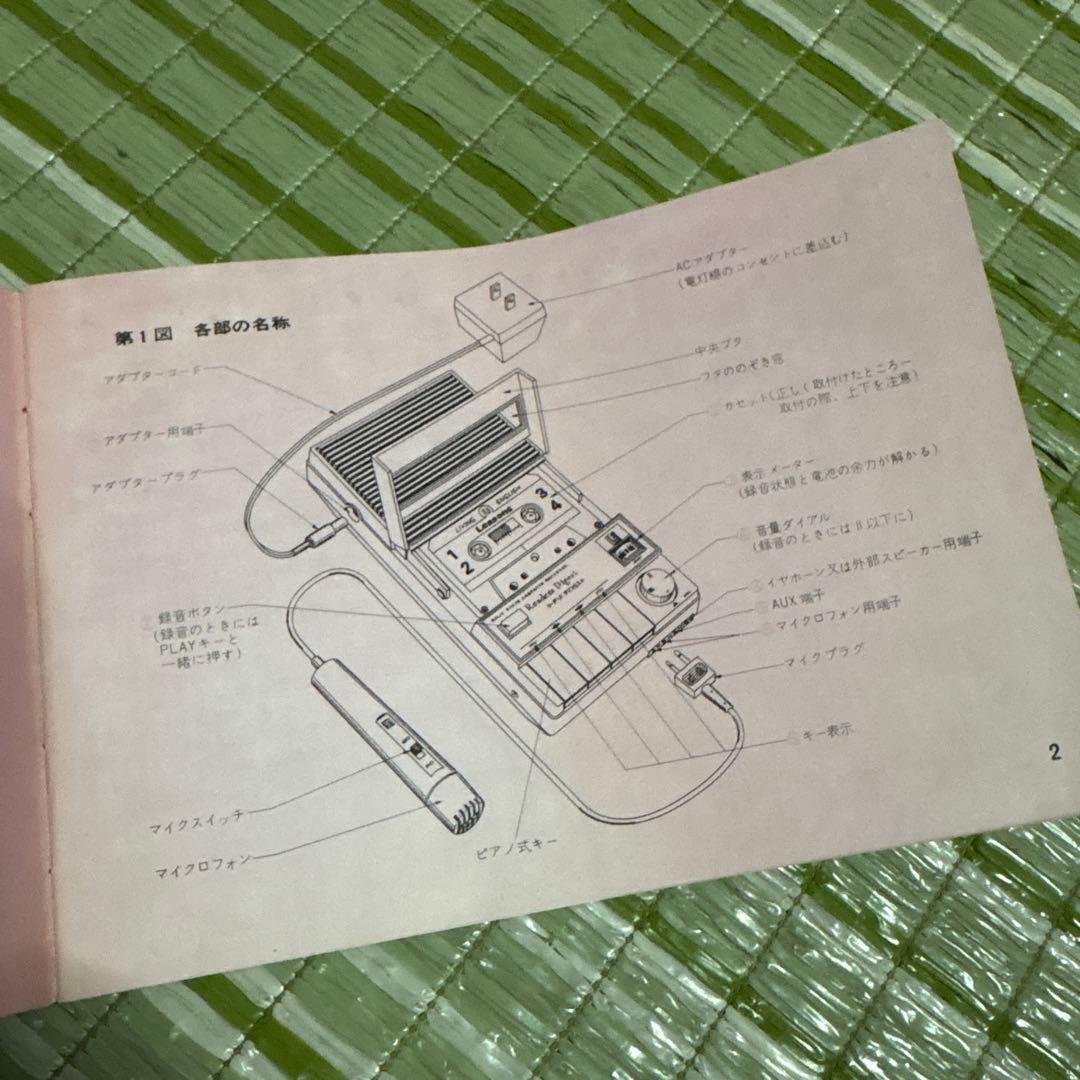 第1図 各部の名称
ACアダプター
(電灯線のコンセントに差込む)
アダプターコード
中央フタ
フタののぞき窓
カセット(正しく取付けたところ―
取付の際、上下を注意)
アダプター用端子
アダプタープラグ
表示メーター
(録音状態と電池の余力が解かる)
音量ダイアル
(録音のときには8以下に)
イヤホーン又は外部スピーカー用端子
AUX端子
マイクロフォン用端子
マイクプラグ
LIVING ENGLISH
Lessons
1
2
3
4
Reader's Digest
録音ボタン
(録音のときには
PLAYキーと
一緒に押す)
キー表示
マイクスイッチ
マイクロフォン
ピアノ式キー
2